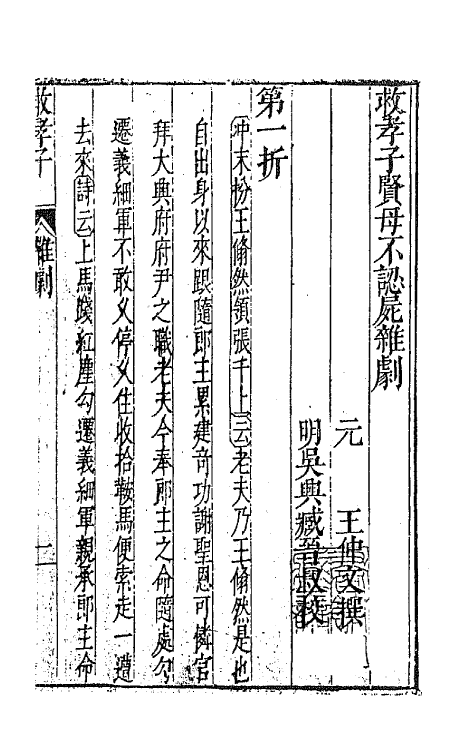 救孝子賢母不認屍雜劇
元 王仲文撰
明吳興臧晉叔校
第一折
冲末扮王翛然領張千上云老夫乃王翛然是也
自出身以來跟隨郎主累建奇功謝聖恩可憐官
拜大興府府尹之職老夫今奉郎主之命隨處勾
遷義細軍不敢乂停乂住收拾鞍馬便索走一遭
去來詩云上馬踐紅塵勾遷義細軍親承郎主命
救孝子
雜劇
一